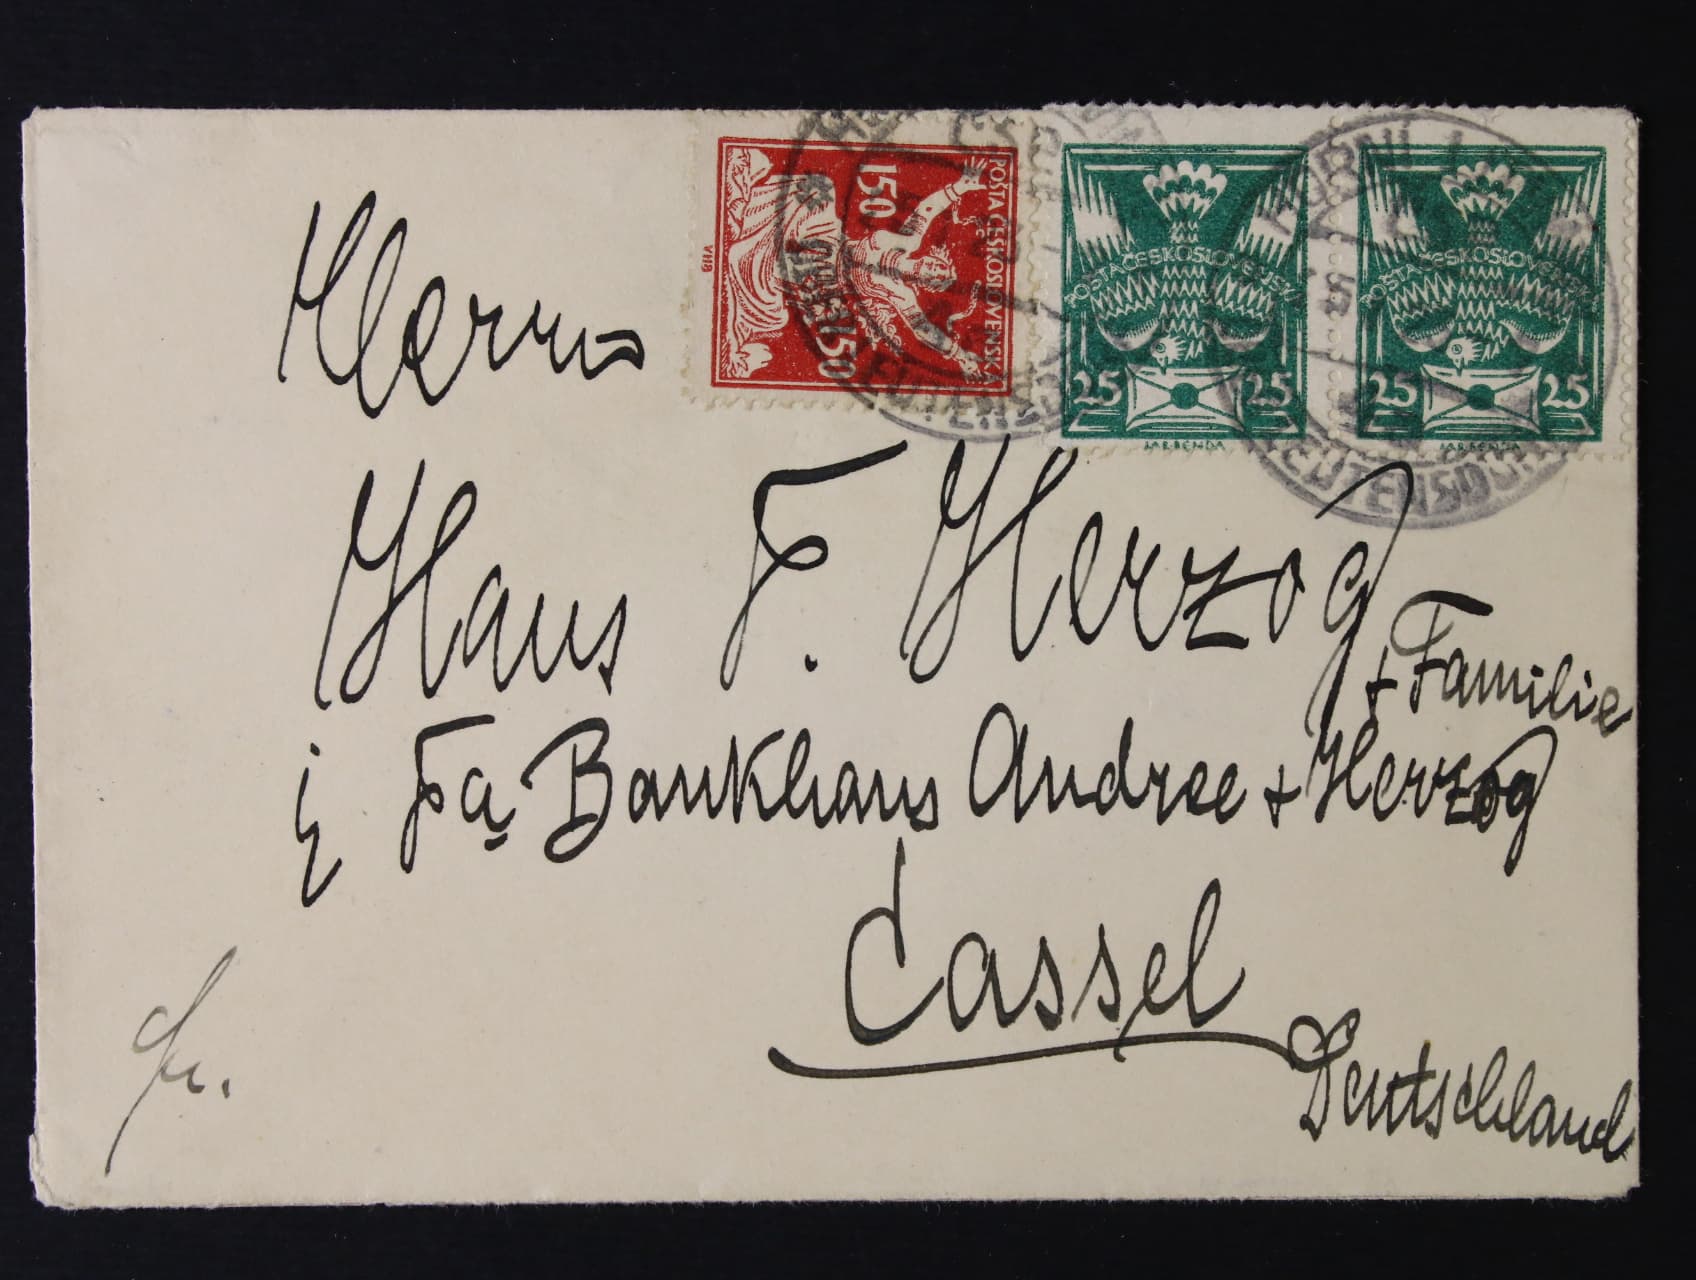 POŠTA ČESKOSLOVENSKÁ
150
150
POŠTA ČESKOSLOVENSKÁ
25 25
JAR.BENDA
POŠTA ČESKOSLOVENSKÁ
25 25
JAR.BENDA
Herrn
Hans F. Herzog
+ Familie
i/ Fa Bankhaus Andree + Herzog
Cassel
Deutschland